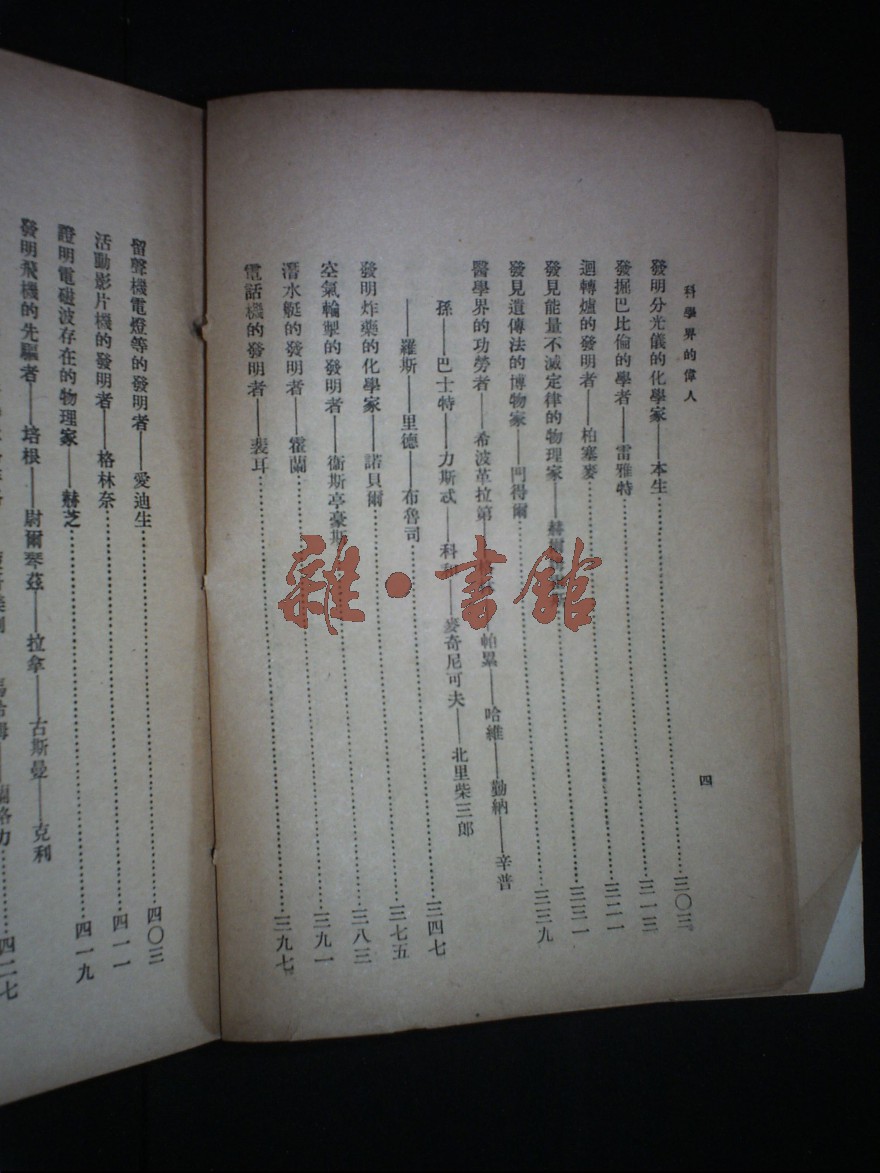 科學界的偉人
四
發明分光儀的化學家——本生……三〇三
發掘巴比倫的學者——雷雅特……三一三
迴轉爐的發明者——柏塞麥……三二一
發見能量不滅定律的物理家——赫爾……三三一
發見遺傳法的博物家——門得爾……三三九
醫學界的功勞者——希波革拉第——帕累——哈維——勤納——辛普
孫——巴士特——力斯忒——科利——麥奇尼可夫——北里柴三郎
——羅斯——里德——布魯司……三四七
發明炸藥的化學家——諾貝爾……三七五
空氣輪掣的發明者——衞斯亭豪斯……三八三
潛水艇的發明者——霍蘭……三九一
電話機的發明者——裴耳……三九七
留聲機電燈等的發明者——愛迪生……四〇三
活動影片機的發明者——格林奈……四一一
證明電磁波存在的物理家——赫芝……四一九
發明飛機的先驅者——培根——尉爾琴茲——拉拿——古斯曼——克利
蘭格力……四二七
雜·書館